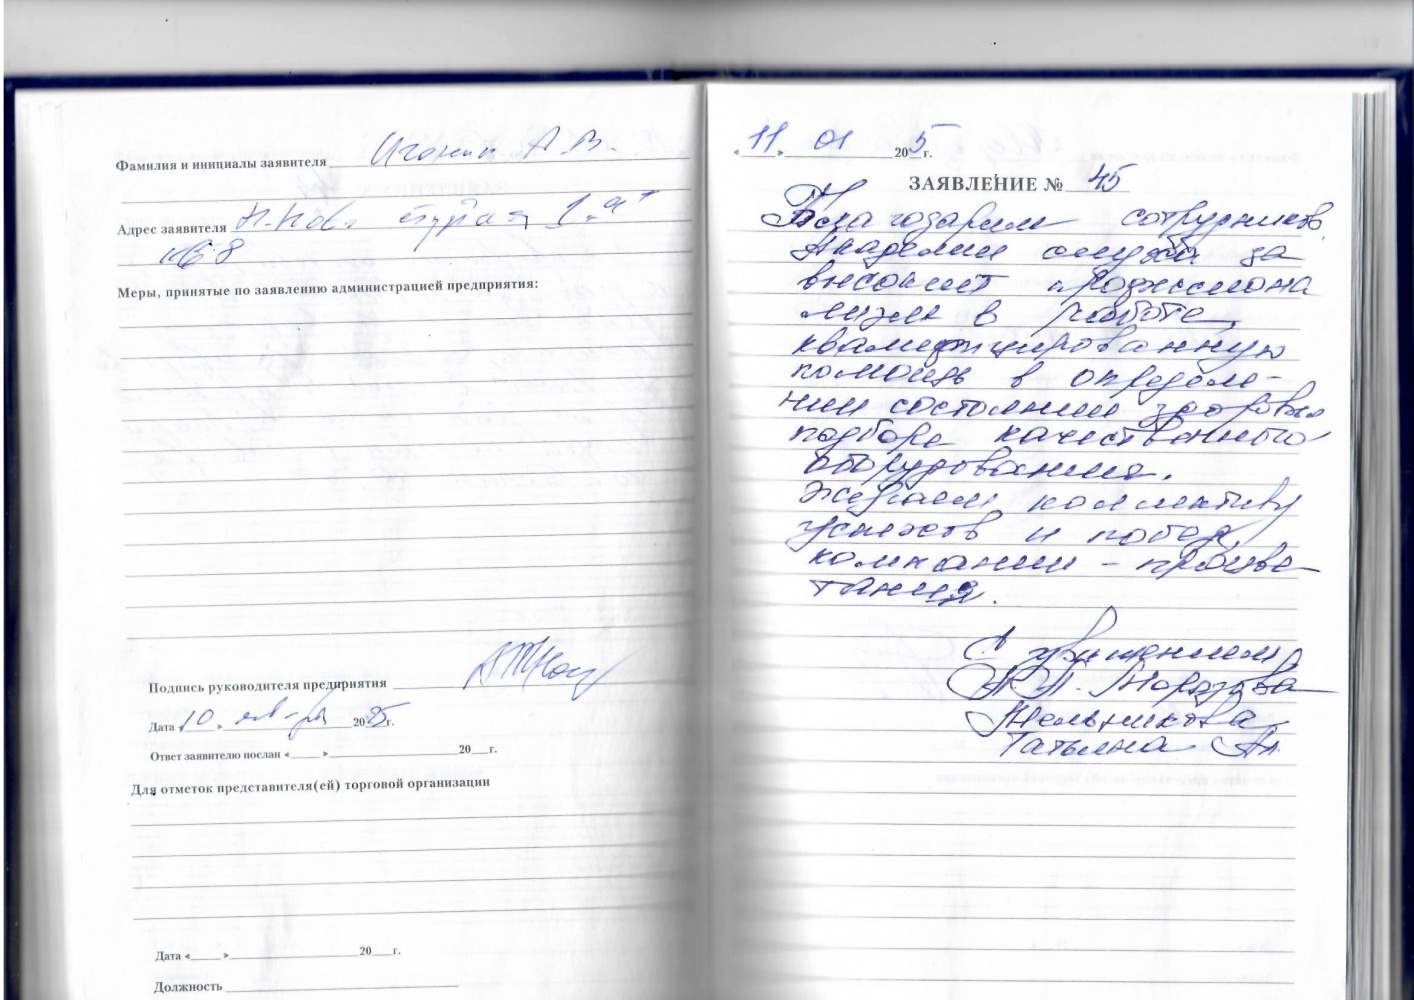 Фамилия и инициалы заявителя Игонин А.В.
Адрес заявителя Н-Нов
Меры, принятые по заявлению администрацией предприятия:
Подпись руководителя предприятия
Дата «10» января 2025г.
Ответ заявителю послан «____» ____ 20__г.
Для отметок представителя(ей) торговой организации
Дата «____» ____ 20__г.
Должность
«11» 01 205г.
ЗАЯВЛЕНИЕ № 45
Благодарим сотрудников
Академии слуха за
высокий профессиона
лизм в работе,
квалифицированную
помощь в определе-
нии состояния здоровья
подборе качественного
оборудования.
Желаем коллективу
успехов и побед,
компании - процве-
тания.
С уважением,
Морозова
Мельникова
Татьяна Ал.